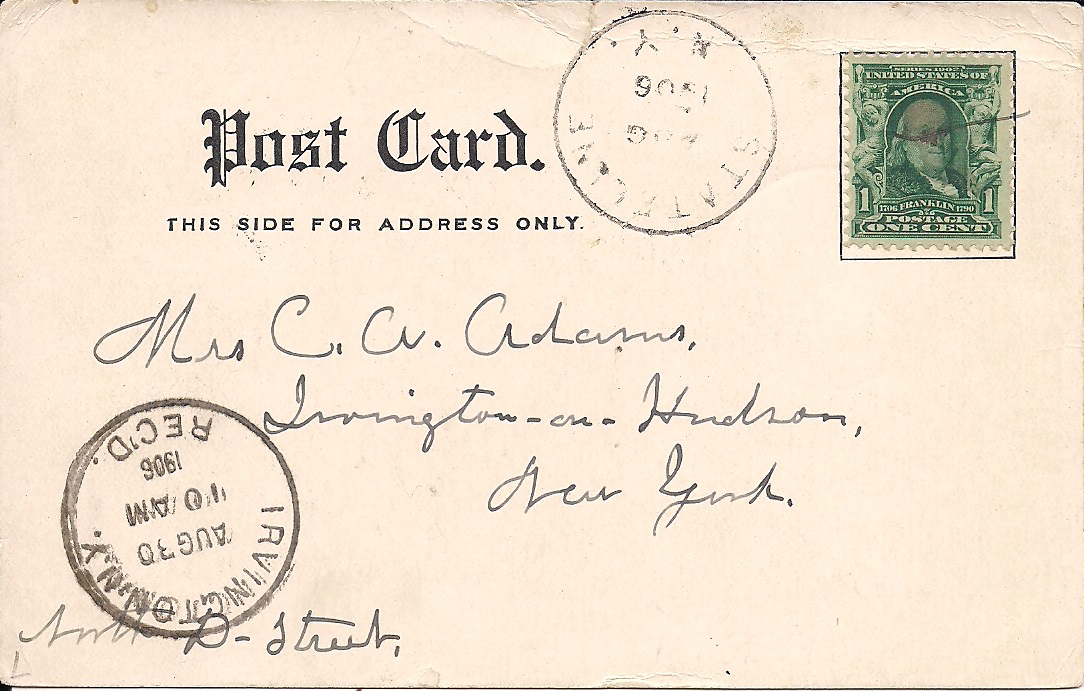 Post Card.
THIS SIDE FOR ADDRESS ONLY.
STATELINE
N.Y.
AUG
1906
SERIES 1902
UNITED STATES OF
AMERICA
1 1706 FRANKLIN 1790 1
POSTAGE
ONE CENT
Mrs C. A. Adams,
Irvington-on-Hudson,
New York.
IRVINGTON N.Y.
AUG 30
10 AM
1906
REC'D.
North D-Street,